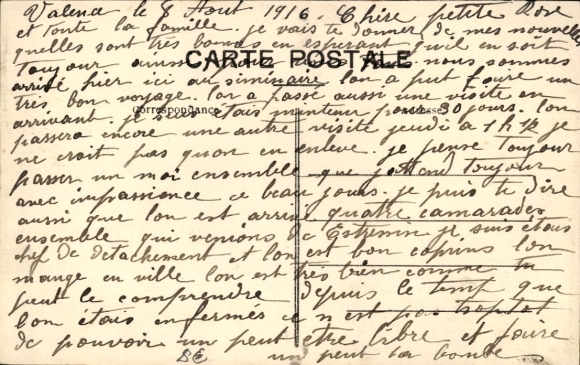 Valence le 8 Aout 1916. Chère petite Rose
et toute la famille. je vais te donner de mes nouvelles
quelles sont très bonnes en esperant qu'il en soit
toujour ainssi nous sommes
CARTE POSTALE
arrivé hier ici au siminaire lon a put faire un
très bon voyage. lon a passé aussi une visite en
Correspondance
Adresse
arrivant. je suis étais mintenu pour 30 jours. lon
passera encore une autre visite jeudi à 1 h 1/2 je
ne croit pas quon en enlève. je pense toujour
passer un moi ensemble que j'attend toujour
avec impassience ce beau jours. je puis te dire
aussi que lon est arrivé quatre camarades
ensemble qui venions de je suis étais
chef de détachement et lon est bon copains lon
mange en ville lon est très bien comme tu
peut le comprendre depuis le temp que
lon étais enfermés ce n est pas troptot
de pouvoir un peut etre libre et faire
un peut la bombe